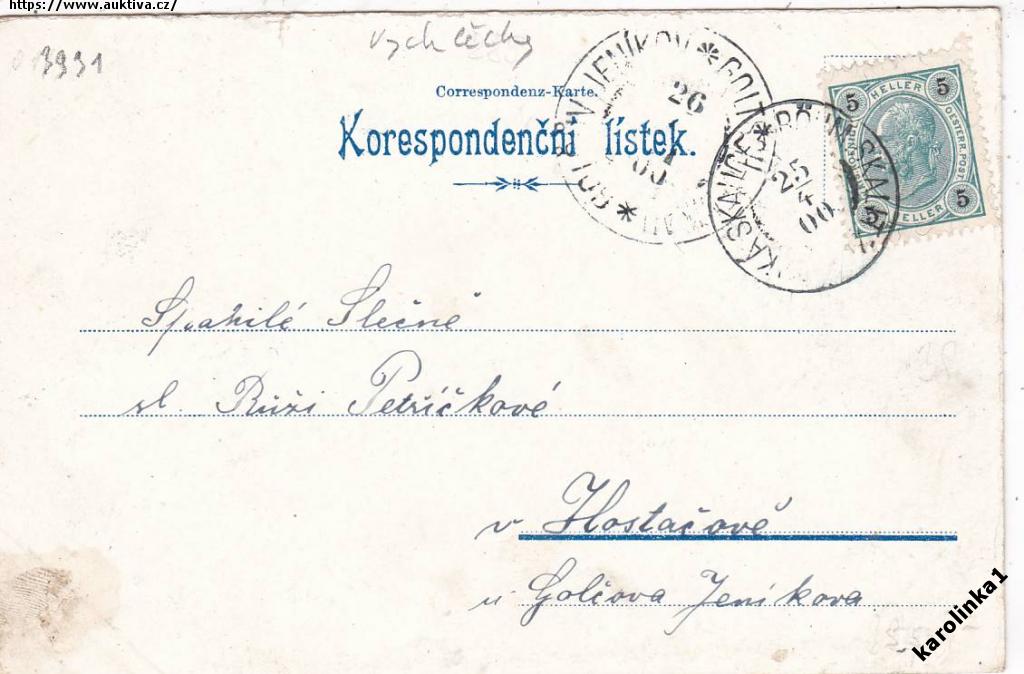 https://www.auktiva.cz/
3931
Vých Čechy
Correspondenz-Karte.
Korespondenční lístek.
GOLČŮV JENÍKOV * GOLTSCH JENIKAU *
26
ČESKÁ SKALICE * BÖHM. SKALITZ
25
4
00
5 HELLER 5
OESTERR. POST
5 HELLER 5
Spanilé Slečně
sl. Růži Petříčkové
v Hostačově
u Golčova Jeníkova
karolinka1